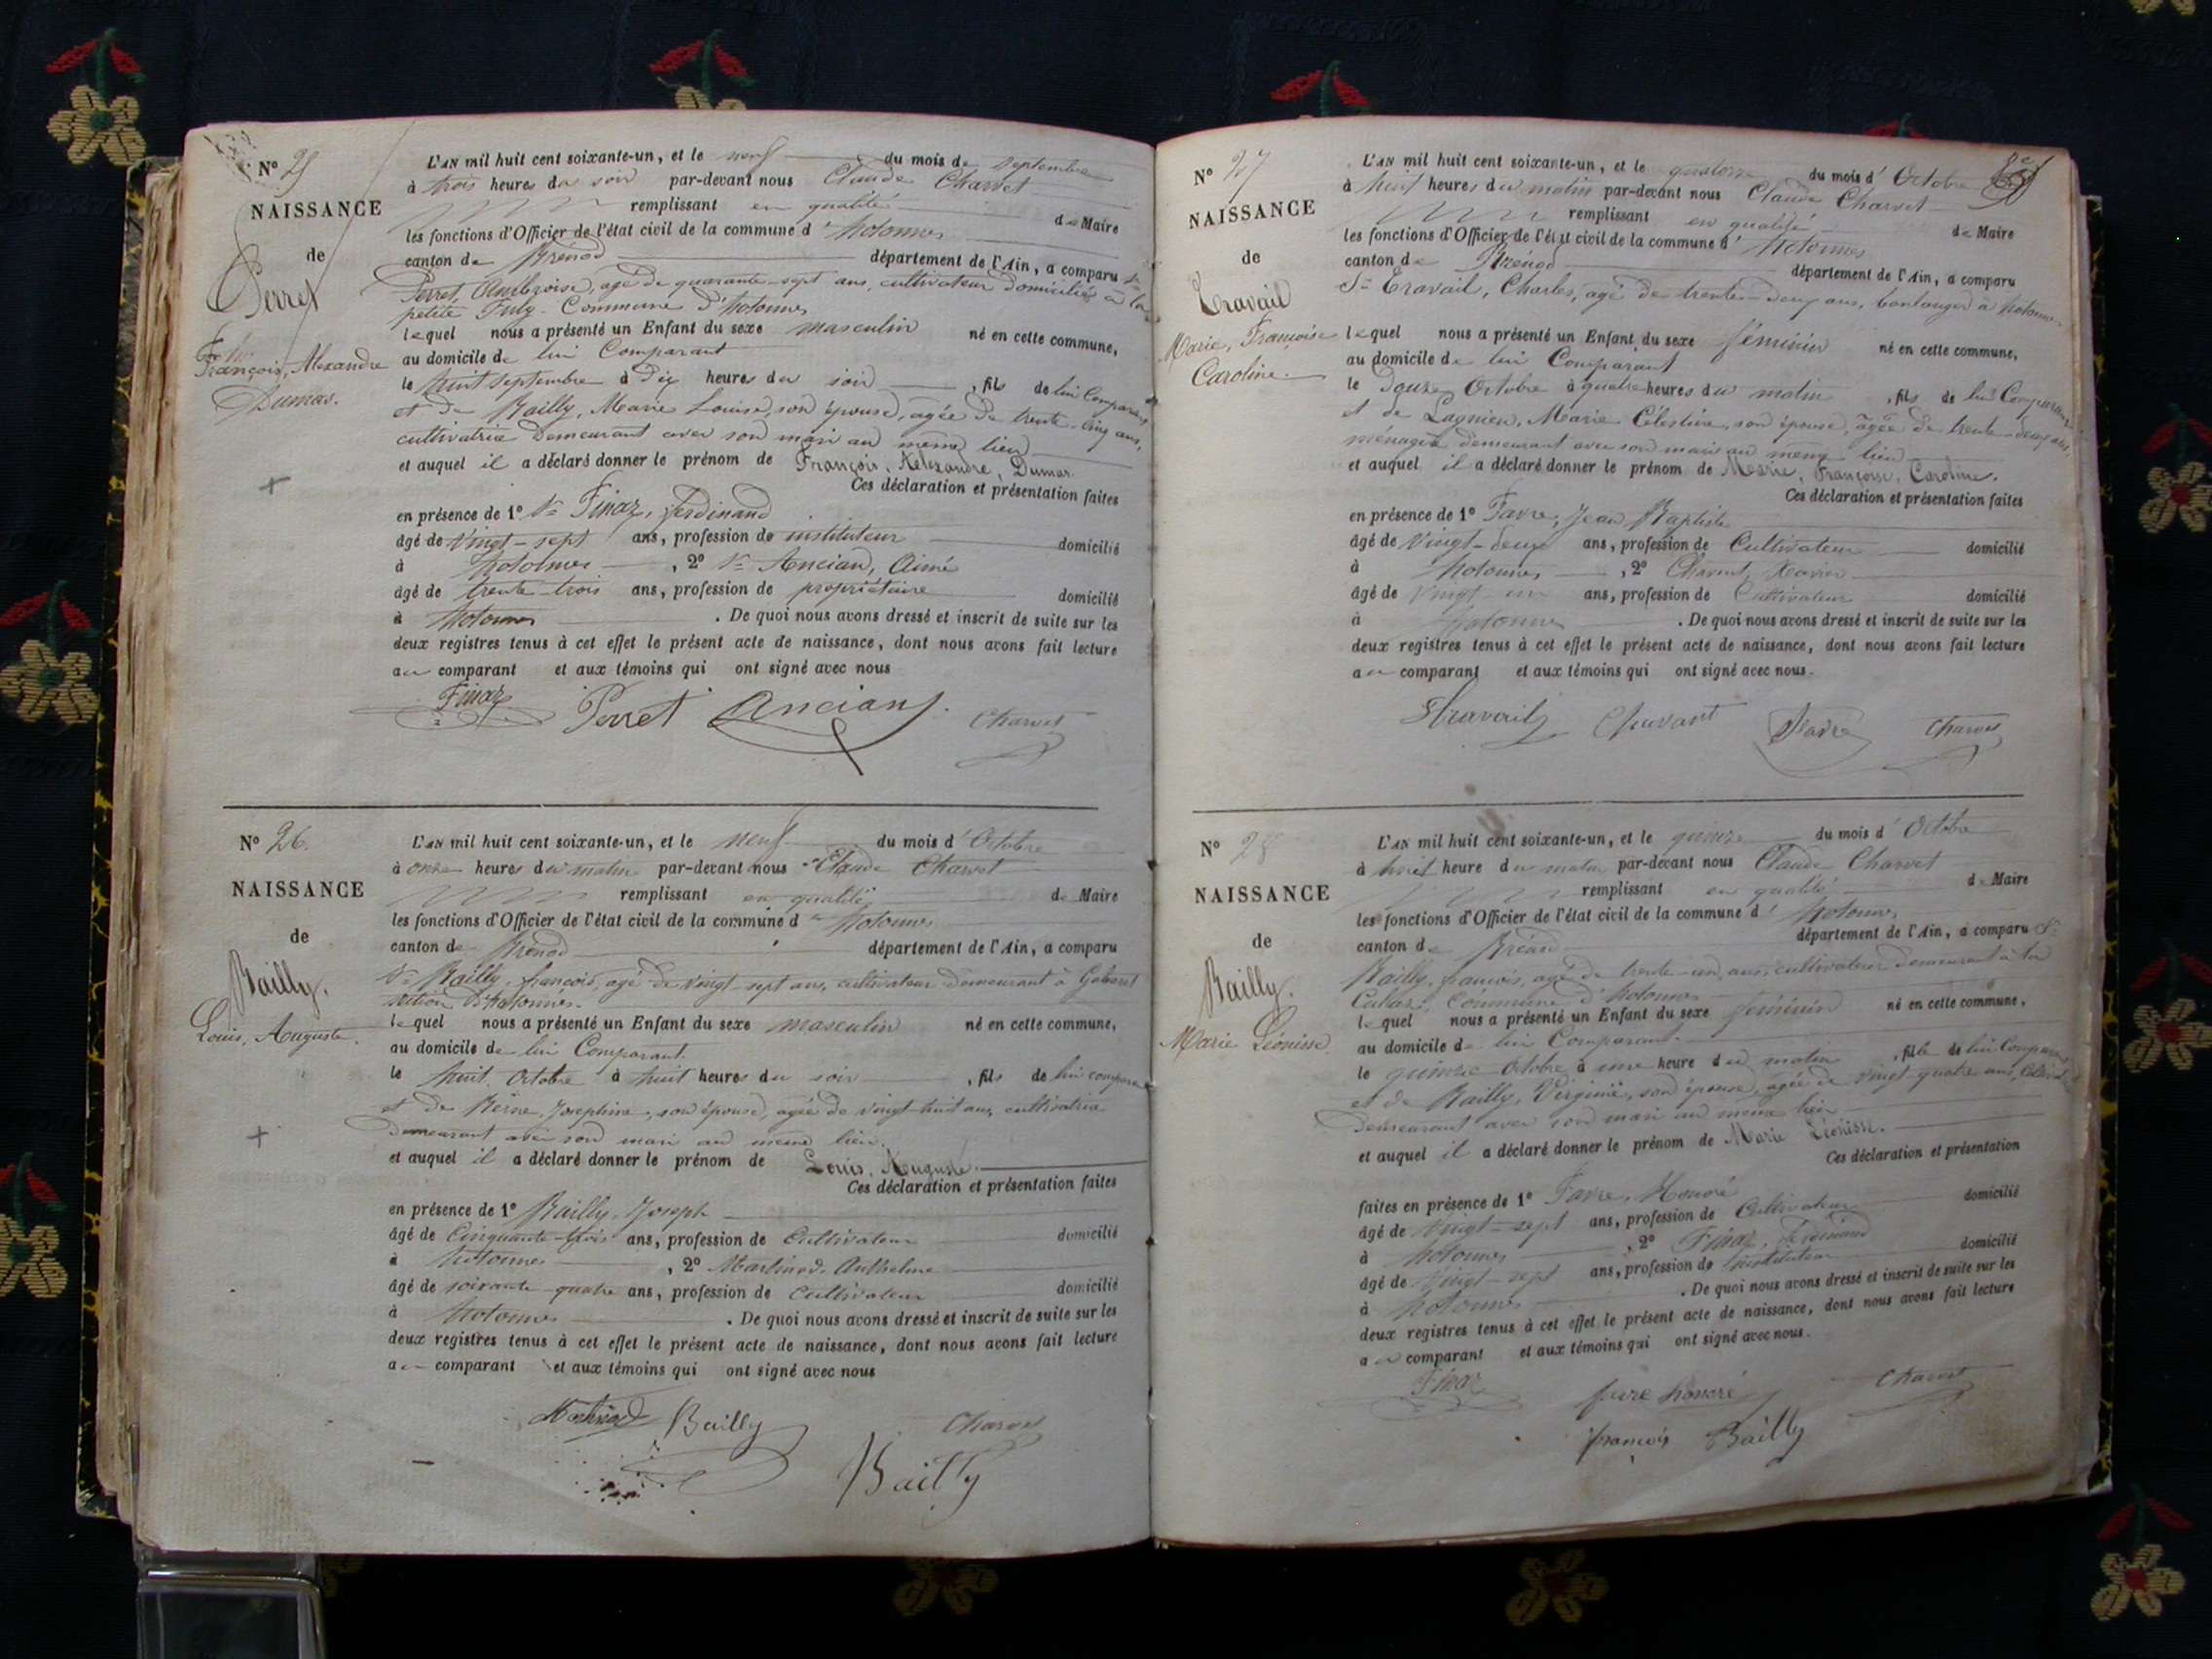 N° 25
NAISSANCE
de
Perret
François, Alexandre
Dumas.
L'AN mil huit cent soixante-un, et le neuf du mois de septembre
à trois heures du soir par-devant nous Claude Charvet
remplissant en qualité de Maire
les fonctions d'Officier de l'état civil de la commune d'hotonnes
canton de Brénod département de l'Ain, a comparu Sr
Perret, Ambroise, agé de quarante-sept ans, cultivateur domicilié à la
petite Commune d'hotonnes
lequel nous a présenté un Enfant du sexe masculin né en cette commune,
au domicile de lui Comparant
le huit septembre à dix heures du soir, fils de lui Comparant
et de Bailly, Marie Louise, son épouse, agée de trente-cinq ans,
cultivatrice demeurant avec son mari au même lieu
et auquel il a déclaré donner le prénom de François, Alexandre, Dumas.
Ces déclaration et présentation faites
en présence de 1° Sr Finaz, Ferdinand
âgé de vingt-sept ans, profession de instituteur domicilié
à hotonnes, 2° Sr Ancian, Aimé
âgé de trente-trois ans, profession de propriétaire domicilié
à hotonnes. De quoi nous avons dressé et inscrit de suite sur les
deux registres tenus à cet effet le présent acte de naissance, dont nous avons fait lecture
au comparant et aux témoins qui ont signé avec nous
Finaz Perret Ancian Charvet
N° 26.
NAISSANCE
de
Bailly.
Louis, Auguste.
L'AN mil huit cent soixante-un, et le neuf du mois d'Octobre
à onze heures du matin par-devant nous Claude Charvet
remplissant en qualité de Maire
les fonctions d'Officier de l'état civil de la commune d'hotonnes
canton de Brénod département de l'Ain, a comparu
Sr Bailly, françois, agé de vingt-sept ans, cultivateur demeurant à
section d'hotonnes.
lequel nous a présenté un Enfant du sexe masculin né en cette commune,
au domicile de lui Comparant.
le huit Octobre à huit heures du soir, fils de lui comparant
et de Josephine, son épouse, agée de vingt-huit ans, cultivatrice
demeurant avec son mari au même lieu.
et auquel il a déclaré donner le prénom de Louis, Auguste.
Ces déclaration et présentation faites
en présence de 1° Bailly, Joseph
âgé de Cinquante-trois ans, profession de Cultivateur domicilié
à hotonnes, 2° Martinod, Anthelme
âgé de soixante-quatre ans, profession de Cultivateur domicilié
à hotonnes. De quoi nous avons dressé et inscrit de suite sur les
deux registres tenus à cet effet le présent acte de naissance, dont nous avons fait lecture
au comparant et aux témoins qui ont signé avec nous
Martinod Bailly Charvet
Bailly
N° 27
NAISSANCE
de
Travail
Marie, Françoise
Caroline.
L'AN mil huit cent soixante-un, et le quatorze du mois d'Octobre
à huit heures du matin par-devant nous Claude Charvet
remplissant en qualité de Maire
les fonctions d'Officier de l'état civil de la commune d'hotonnes
canton de Brénod département de l'Ain, a comparu
Sr Travail, Charles, agé de trente-deux ans, boulanger à hotonnes
lequel nous a présenté un Enfant du sexe féminin né en cette commune,
au domicile de lui Comparant
le douze Octobre à quatre heures du matin, fils de lui Comparant
et de Lagnieu, Marie Célestine, son épouse, agée de trente-deux ans,
ménagère demeurant avec son mari au même lieu
et auquel il a déclaré donner le prénom de Marie, Françoise, Caroline.
Ces déclaration et présentation faites
en présence de 1° Favre, Jean Baptiste
âgé de vingt-deux ans, profession de Cultivateur domicilié
à hotonnes, 2° Xavier
âgé de vingt-un ans, profession de Cultivateur domicilié
à hotonnes. De quoi nous avons dressé et inscrit de suite sur les
deux registres tenus à cet effet le présent acte de naissance, dont nous avons fait lecture
au comparant et aux témoins qui ont signé avec nous.
Travail Favre Charvet
N° 28
NAISSANCE
de
Bailly.
Marie Léonisse
L'AN mil huit cent soixante-un, et le quinze du mois d'Octobre
à huit heure du matin par-devant nous Claude Charvet
remplissant en qualité de Maire
les fonctions d'Officier de l'état civil de la commune d'hotonnes
canton de Brénod département de l'Ain, a comparu Sr
Bailly, françois, agé de trente-un ans, cultivateur demeurant à la
Commune d'hotonnes
lequel nous a présenté un Enfant du sexe féminin né en cette commune,
au domicile de lui Comparant.
le quinze Octobre à une heure du matin, fille de lui Comparant
et de Bailly, Virginie, son épouse, agée de vingt-quatre ans,
demeurant avec son mari au même lieu
et auquel il a déclaré donner le prénom de Marie Léonisse.
Ces déclaration et présentation
faites en présence de 1° Favre, Honoré
âgé de vingt-sept ans, profession de Cultivateur domicilié
à hotonnes, 2° Finaz, Ferdinand
âgé de vingt-sept ans, profession de instituteur domicilié
à hotonnes. De quoi nous avons dressé et inscrit de suite sur les
deux registres tenus à cet effet le présent acte de naissance, dont nous avons fait lecture
au comparant et aux témoins qui ont signé avec nous.
Finaz favre honoré Charvet
françois Bailly